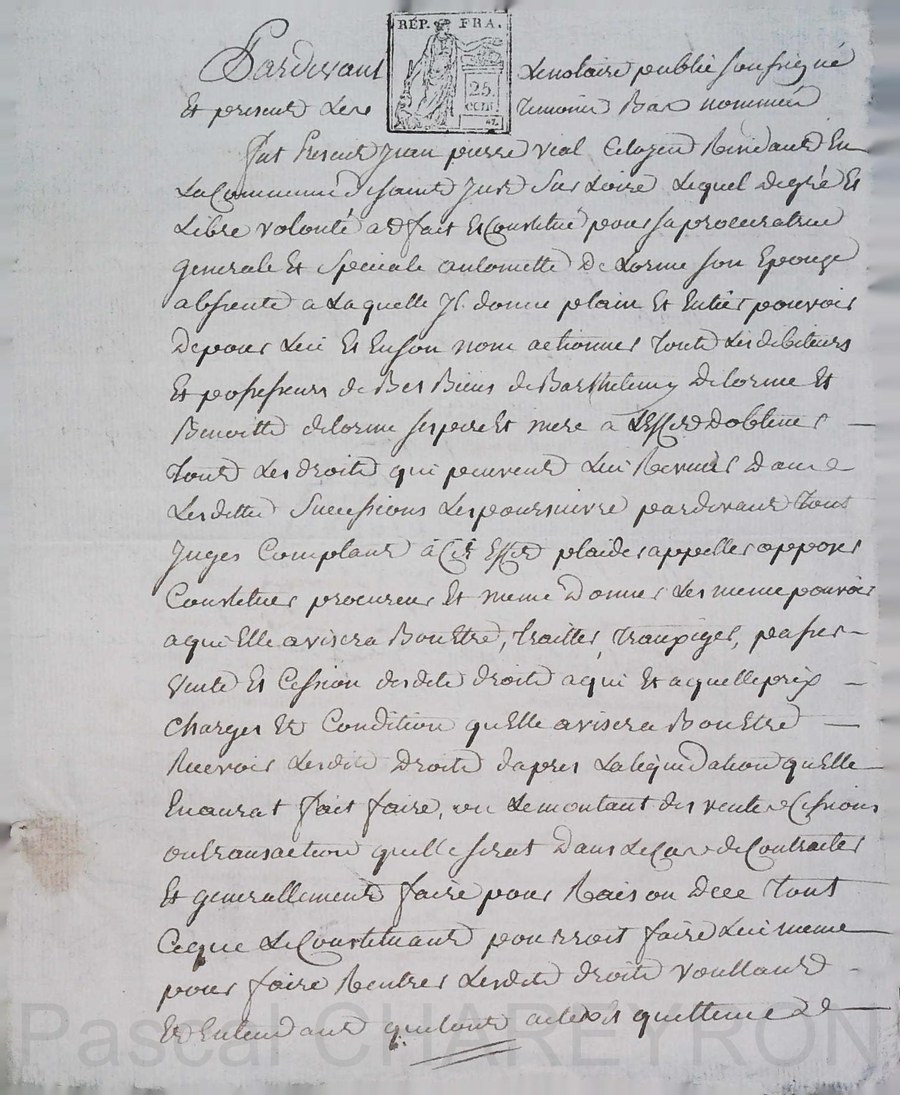 Pardevant Le notaire public soussigné
REP. FRA.
25.
cent.
Et present Les temoins Bas nommés
fut Present Jean pierre vial Citoyen Residant En
La Commune de saint Just Sur Loire Lequel de gré Et
Libre volonté a fait Et Constitué pour sa procuratrice
generale Et Speciale antoinette De Lorme son Epouze
absente a Laquelle Jl donne plain Et Entier pouvoir
De pour Lui Et En son nom actionner toute Les debiteurs
Et possesseurs de Bes Biens de Barthelemy Delorme Et
Benoitte delorme ses pere Et mere a L'Effet D'obtenir
tout Les droits qui peuvent Lui Revenir dans
Lesdittes Successions Les poursuivre pardevant tout
Juges Comptant à Cet Effet plaider appeller opposer
Constituer procureur Et meme Donner Les meme pouvoir
a qui Elle avisera Bon Etre, traitter, tranziger, passer
Vente Et Cession desdits droits a qui Et a quelle prix
Charges Et Condition qu'Elle avisera Bon Etre
Recevoir Lesdits Droits d'apres La liquidation qu'Elle
En aurat fait faire, ou Le montant des vente Cessions
ou transaction qu'elle serat Dans Le Cas de Contracter
Et generallement faire pour Raison de ce tout
Ceque Le Constituant pourroit faire Lui meme
pour faire Rentrer Lesdits droits voullant
Et Entendant que tout actes Et quittence de
Pascal CHAREYRON